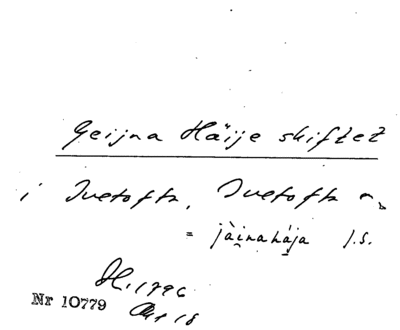 Geijna Häije skiftet
i Ivetofta, Ivetofta sn
= jàinahája J.S.
H. 1796
Nr 10779 Akt 18